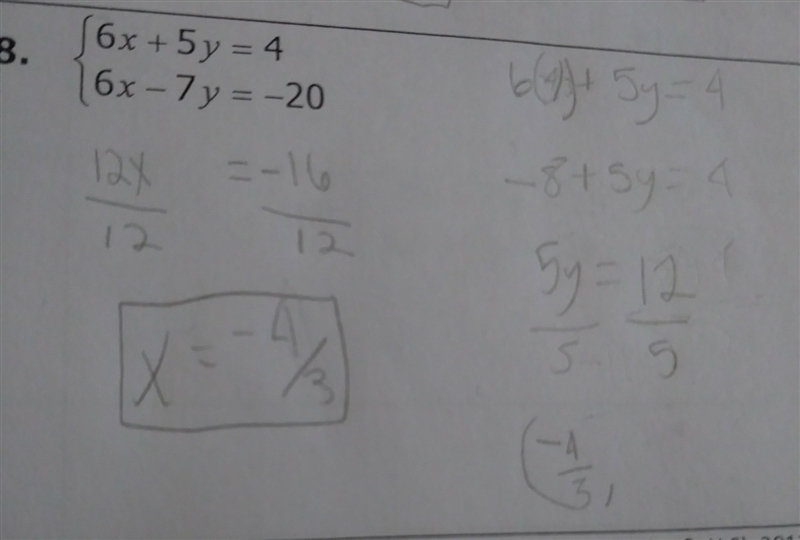 8. 6x + 5y = 4
6x − 7y = −20
12x = -16
12 12
x = -4/3
+ 5y = 4
-8 + 5y = 4
5y = 12
5 5
(-4/3,